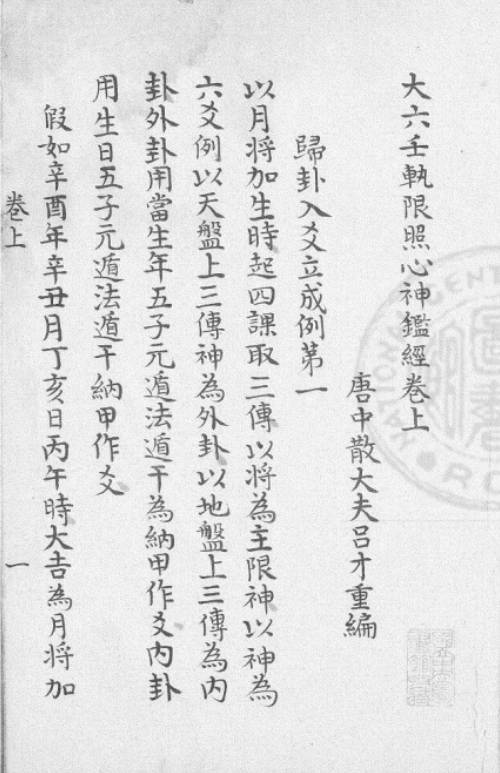 大六壬執限照心神鑑經卷上
唐中散大夫呂才重編
歸卦入爻立成例第一
以月將加生時起四課取三傳以將為主限神以神為
六爻例以天盤上三傳神為外卦以地盤上三傳為內
卦外卦用當生年五子元遁法遁干為納甲作爻內卦
用生日五子元遁法遁干納甲作爻
假如辛酉年辛丑月丁亥日丙午時大吉為月將加
卷上
一